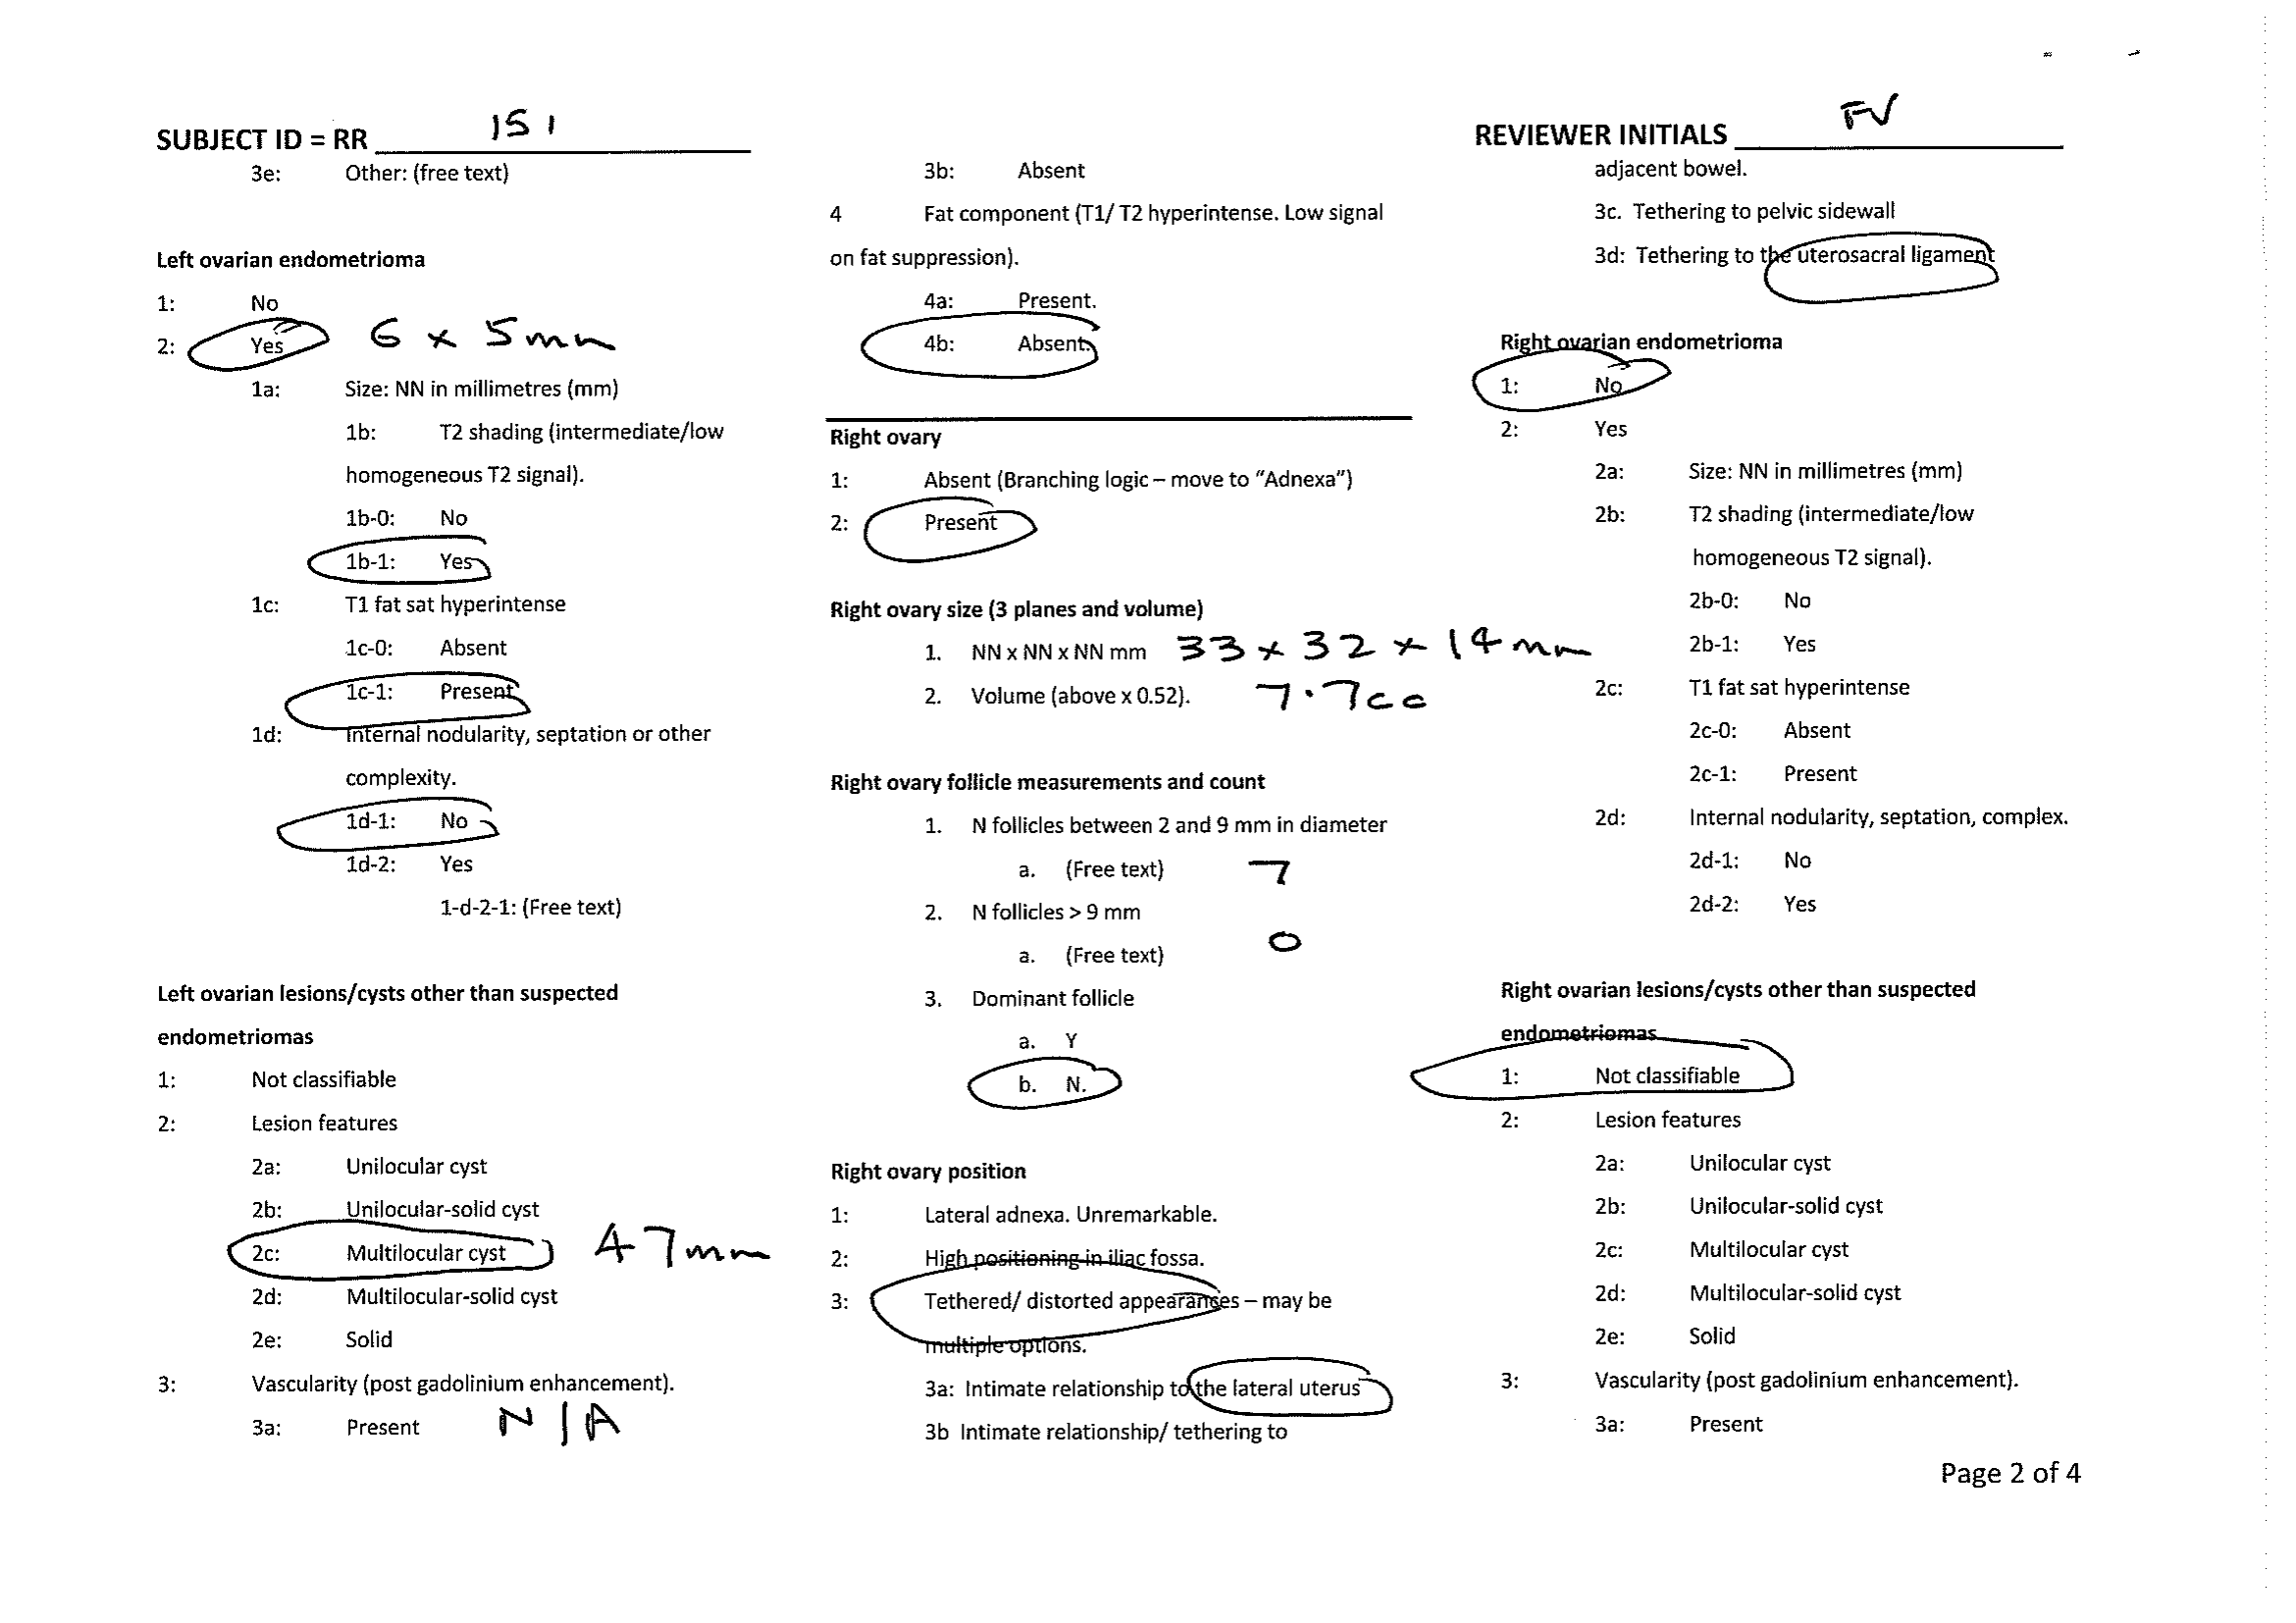 SUBJECT ID = RR 151
3e: Other: (free text)
Left ovarian endometrioma
1: No
2: Yes 6 x 5mm
1a: Size: NN in millimetres (mm)
1b: T2 shading (intermediate/low
homogeneous T2 signal).
1b-0: No
1b-1: Yes
1c: T1 fat sat hyperintense
1c-0: Absent
1c-1: Present
1d: Internal nodularity, septation or other
complexity.
1d-1: No
1d-2: Yes
1-d-2-1: (Free text)
Left ovarian lesions/cysts other than suspected
endometriomas
1: Not classifiable
2: Lesion features
2a: Unilocular cyst
2b: Unilocular-solid cyst
2c: Multilocular cyst 47mm
2d: Multilocular-solid cyst
2e: Solid
3: Vascularity (post gadolinium enhancement).
3a: Present N/A
3b: Absent
4 Fat component (T1/ T2 hyperintense. Low signal
on fat suppression).
4a: Present.
4b: Absent.
Right ovary
1: Absent (Branching logic – move to “Adnexa”)
2: Present
Right ovary size (3 planes and volume)
1. NN x NN x NN mm 33 x 32 x 14 mm
2. Volume (above x 0.52). 7.7cc
Right ovary follicle measurements and count
1. N follicles between 2 and 9 mm in diameter
a. (Free text) 7
2. N follicles > 9 mm
a. (Free text) 0
3. Dominant follicle
a. Y
b. N.
Right ovary position
1: Lateral adnexa. Unremarkable.
2: High positioning in iliac fossa.
3: Tethered/ distorted appearances – may be
multiple options.
3a: Intimate relationship to the lateral uterus
3b Intimate relationship/ tethering to
REVIEWER INITIALS FV
adjacent bowel.
3c. Tethering to pelvic sidewall
3d: Tethering to the uterosacral ligament
Right ovarian endometrioma
1: No
2: Yes
2a: Size: NN in millimetres (mm)
2b: T2 shading (intermediate/low
homogeneous T2 signal).
2b-0: No
2b-1: Yes
2c: T1 fat sat hyperintense
2c-0: Absent
2c-1: Present
2d: Internal nodularity, septation, complex.
2d-1: No
2d-2: Yes
Right ovarian lesions/cysts other than suspected
endometriomas
1: Not classifiable
2: Lesion features
2a: Unilocular cyst
2b: Unilocular-solid cyst
2c: Multilocular cyst
2d: Multilocular-solid cyst
2e: Solid
3: Vascularity (post gadolinium enhancement).
3a: Present
Page 2 of 4